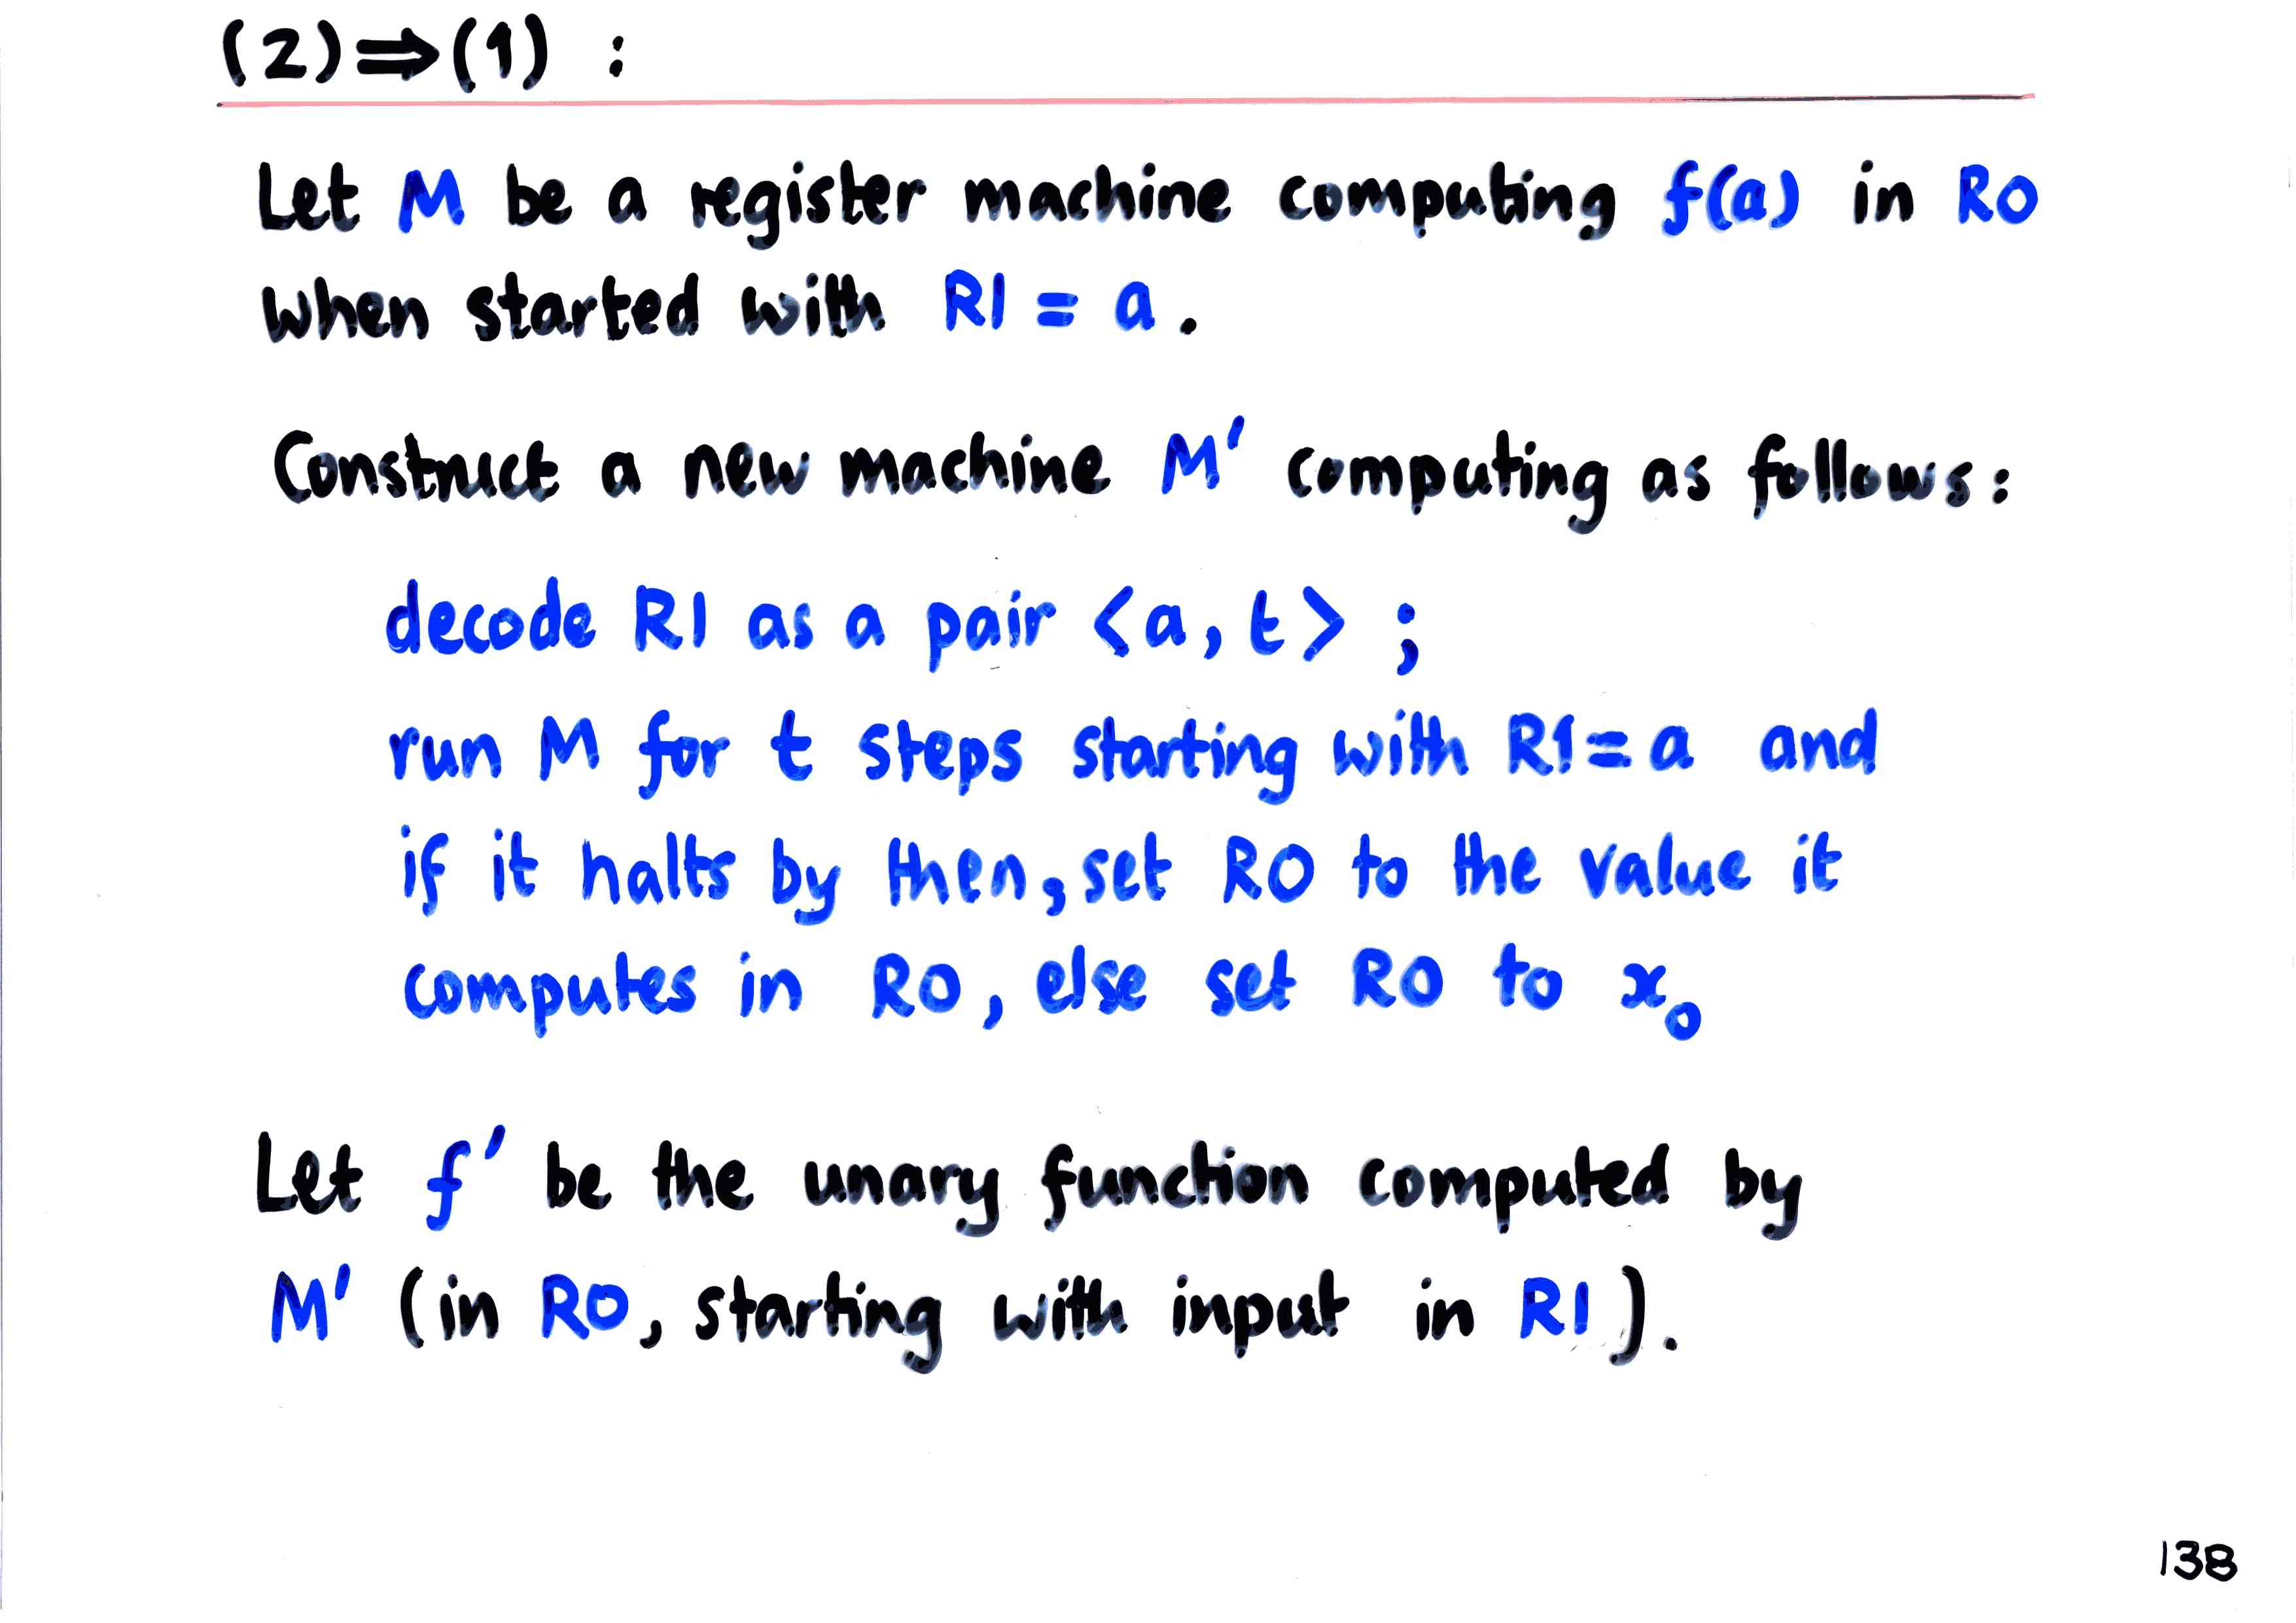 (2)⇒(1) :
Let M be a register machine computing f(a) in R0
when started with R1 = a.
Construct a new machine M' computing as follows:
decode R1 as a pair <a,t> ;
run M for t steps starting with R1=a and
if it halts by then, set R0 to the value it
computes in R0, else set R0 to x₀
Let f' be the unary function computed by
M' (in R0, starting with input in R1).
138